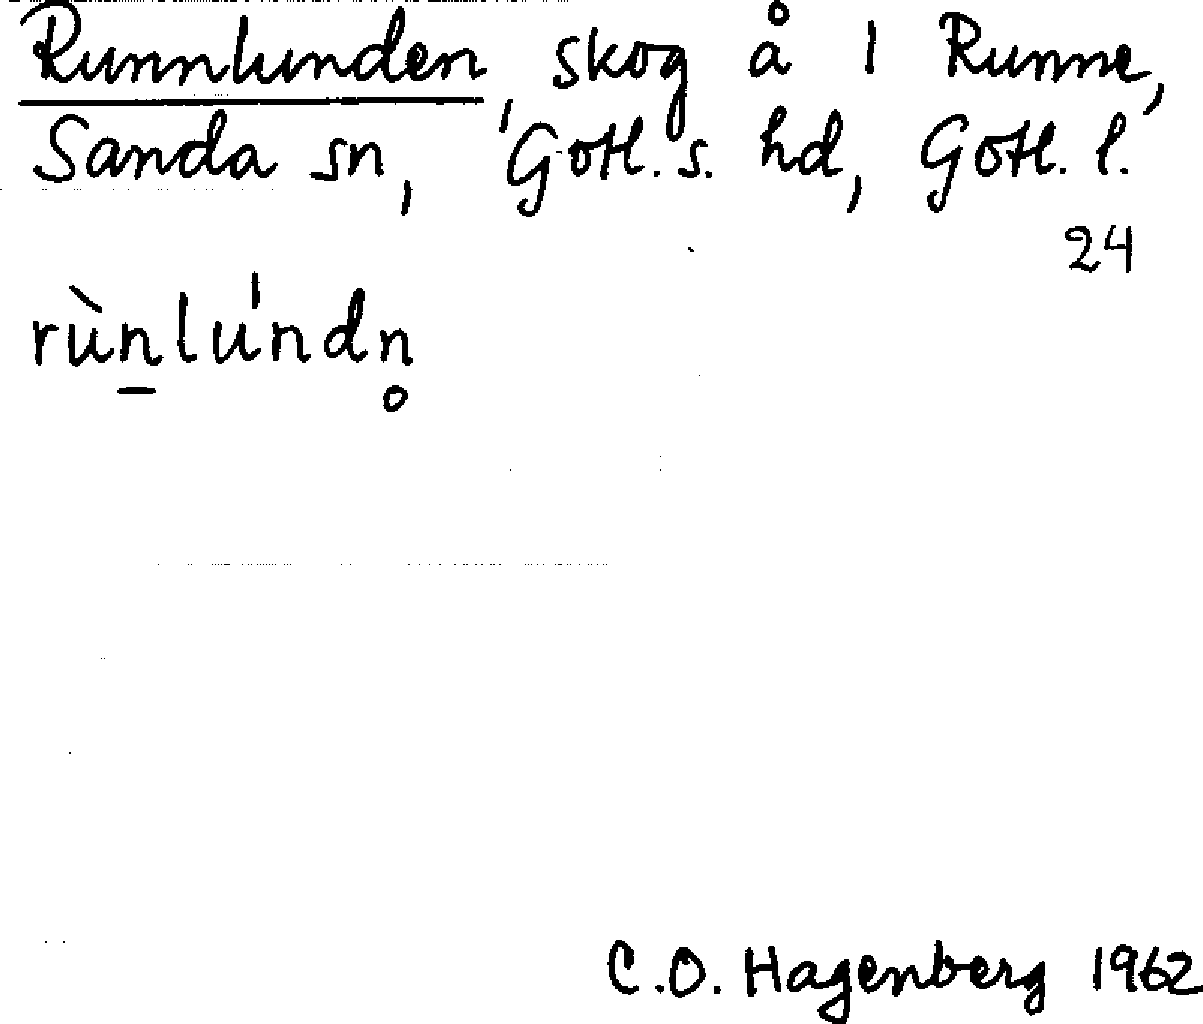 Runnlunden, skog å 1 Runne,
Sanda sn, Gotl. s. hd, Gotl. l.
24
rùn̲lu̍ndn̥
C.O. Hagenberg 1962